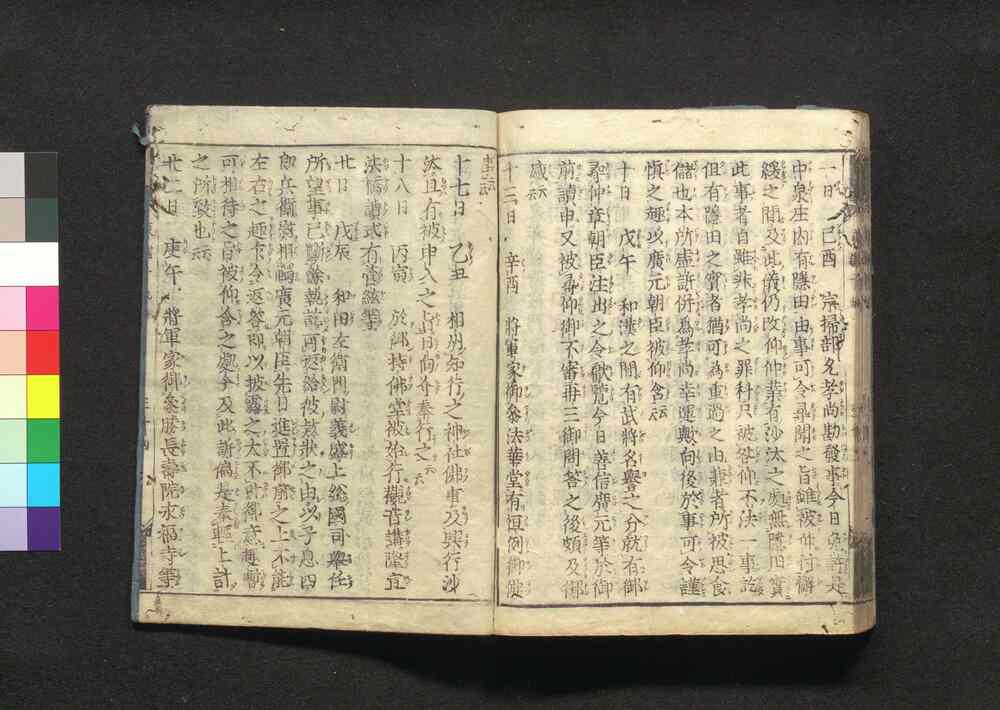 一日 己酉 宗掃部允孝尚勘發事今日免許是
中泉庄内有隱田由事可令尋聞之旨雖被仲村
緩之間及此儀仍改仰仲業有沙汰之處無隱田實
此事者自雖非孝尚之罪科只被咎仰不法一事訖
但有隱田之實者猶可為重過之由兼者所被思食
儲也本所虛訴併為孝尚幸運歟向後於事可令謹
慎之趣以廣元朝臣被仰含云云
十日 戊午 和漢之間有武將名譽之分就有御
尋仰章朝臣注出之令獻覽今日善信廣元等於御
前讀申又被尋仰御不審再三御問答之後頗及御
感云云
十三日 辛酉 將軍家御參法華堂有恒例御佛
事云云
十七日 乙丑 相州知行之神社佛事及興行沙
汰且有被申入之旨日向介奉行之云云
十八日 丙寅 於御持佛堂被始行觀音講隆宣
法橋讀式有管絃等
廿日 戊辰 和田左衛門尉義盛上総國司舉任
所望事已斷餘執訴阿愁給彼款狀之由以子息四
郎兵衛尉相觸廣元朝臣先日進置御前之上不能
左右之趣乍令返答即以披露之太不叶御意兼暫
可相待之旨被仰含之處今及此訴偏是奉輕上計
之所致也云云
廿一日 庚午 將軍家御參勝長壽院永福寺等